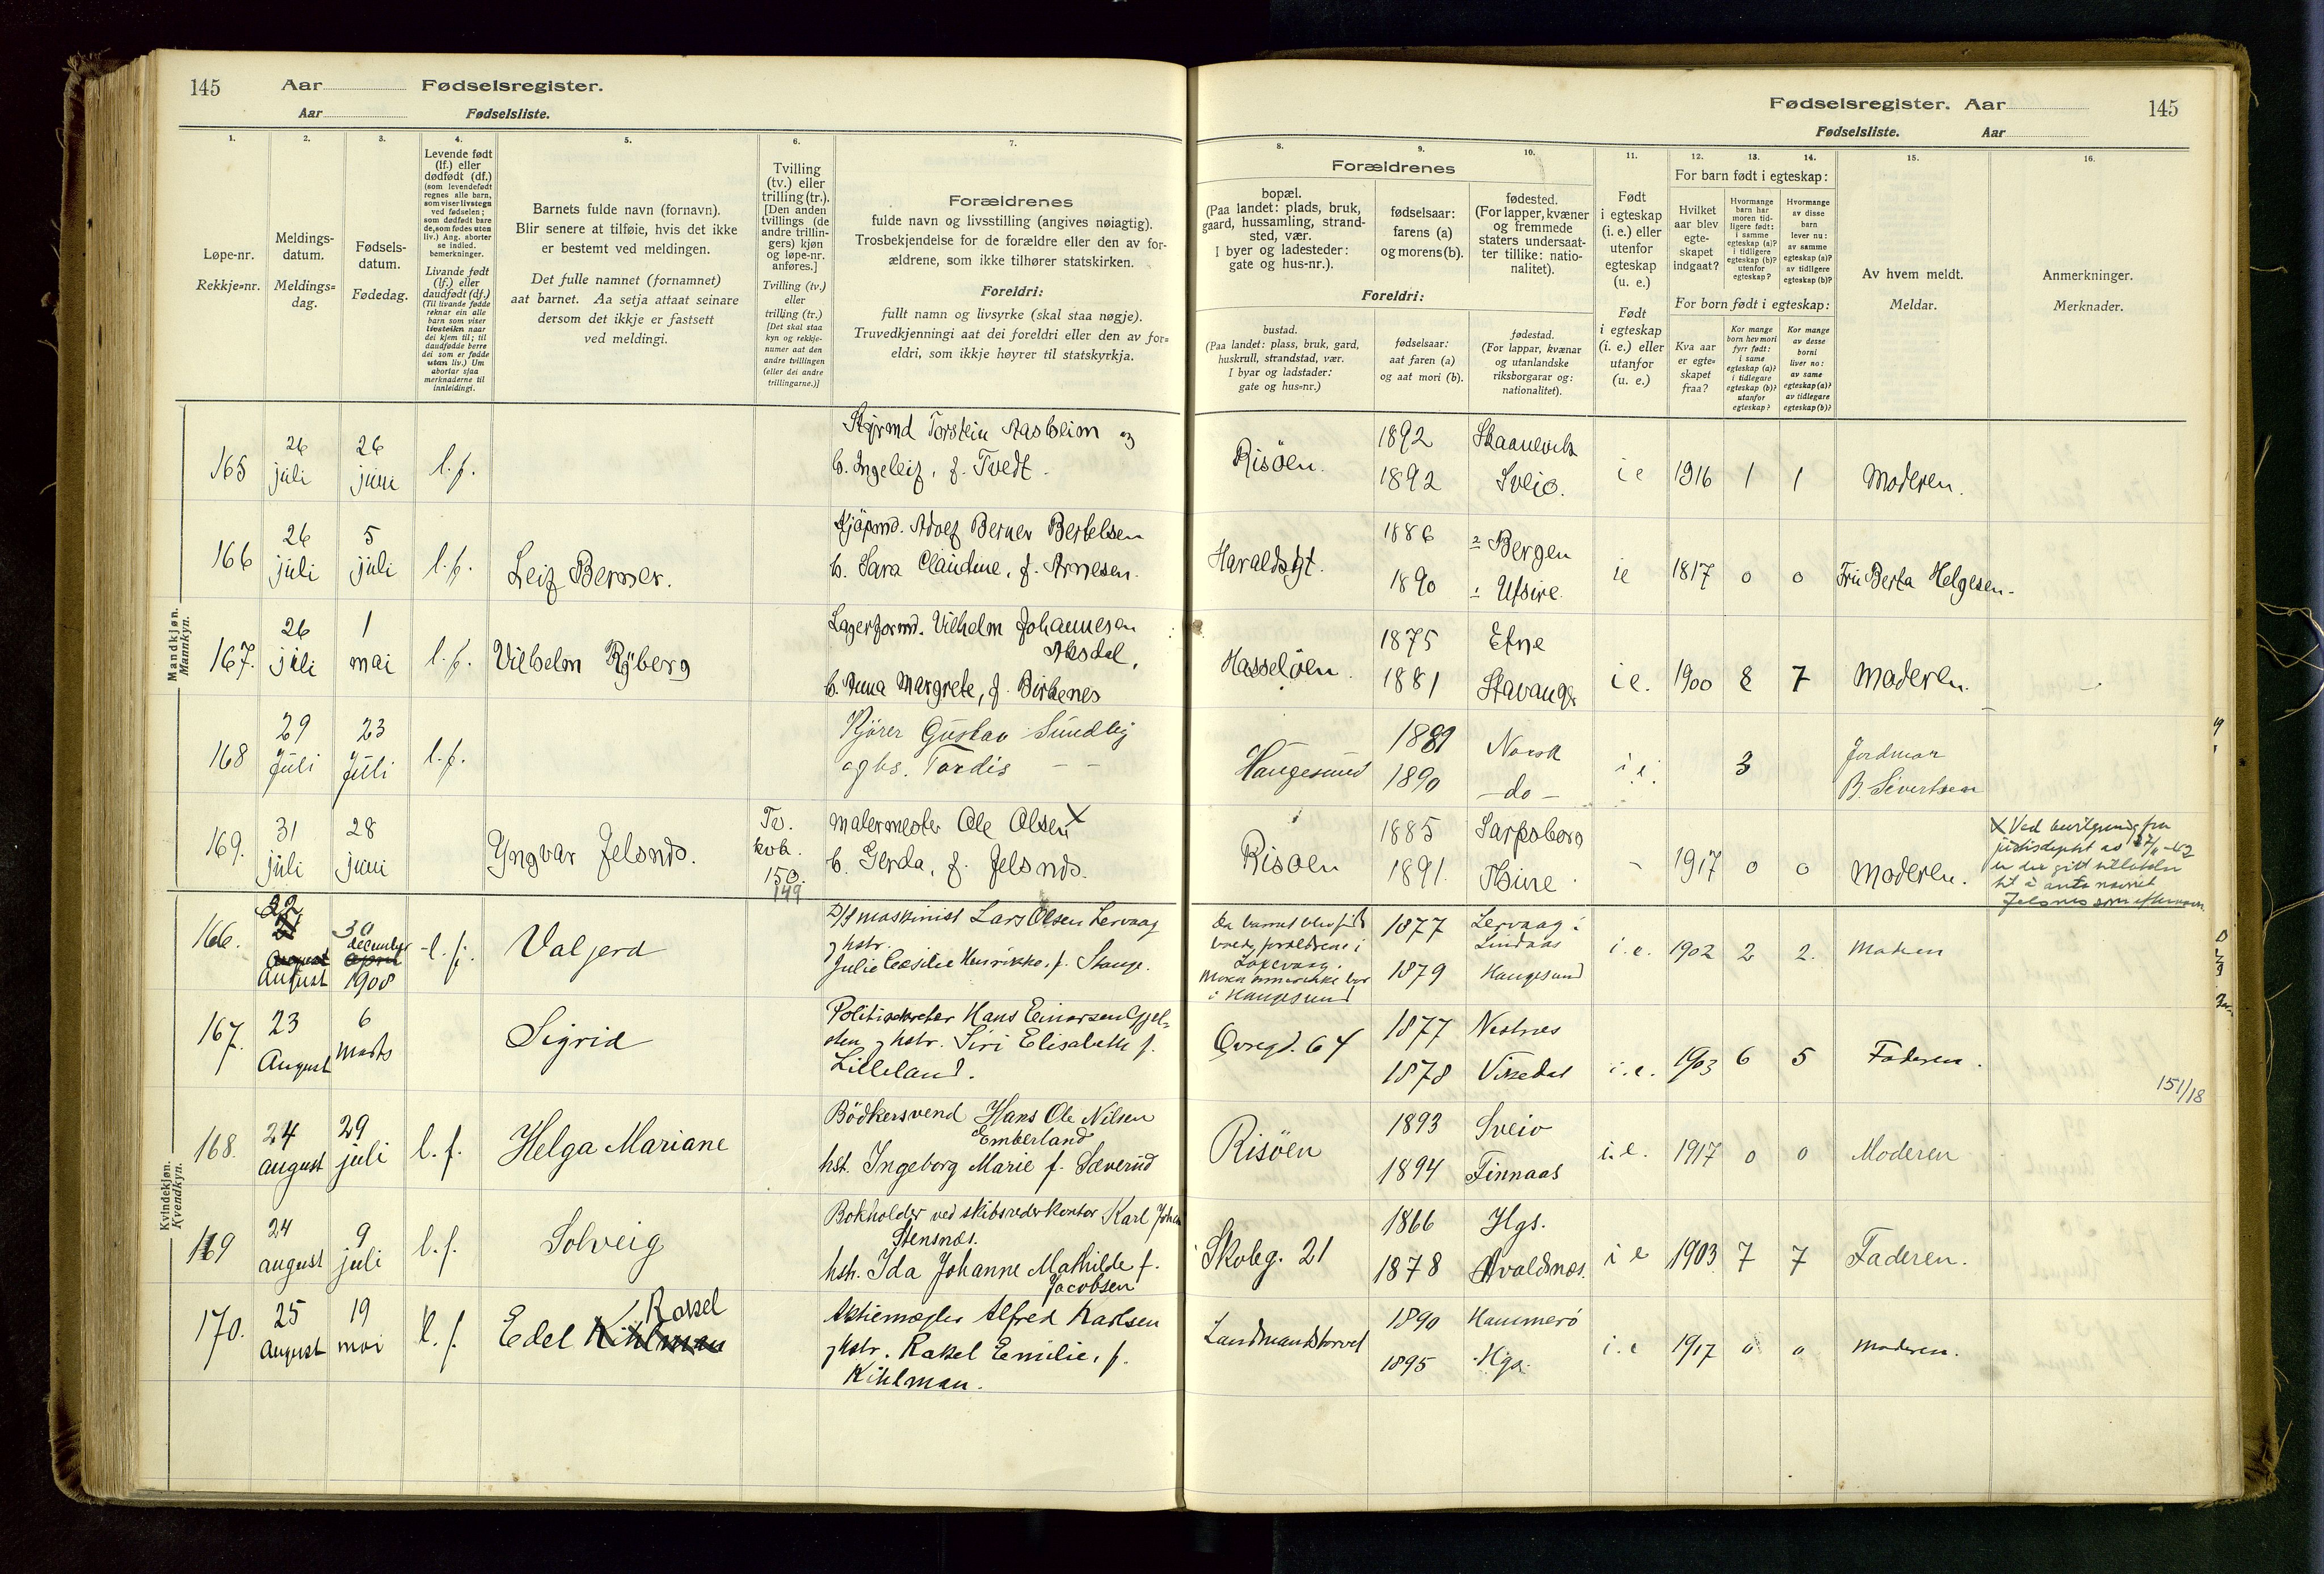 145 Aar Fødselsregister.
Aar Fødselsliste.
Fødselsregister. Aar 145
Fødselsliste. Aar
1. 2. 3. 4. 5. 6. 7.
Løpe-nr.
Rekkje-nr.
Meldings-
datum.
Meldings-
dag.
Fødsels-
datum.
Fødedag.
Levende født
(lf.) eller
dødfødt (df.)
(som levendefødt
regnes alle barn,
som viser livstegn
ved fødselen;
som dødfødt bare
de, som fødes uten
liv.) Ang. aborter
se indled.
bemerkninger.
Livande født
(lf.) eller
daudfødt (df.)
(Til livande fødde
reknar ein alle
born som viser
livsteikn naar
dei kjem til; til
daudfødde berre
dei som er fødde
utan liv.) Um
abortar sjaa
merknaderne til
innleidingi.
Barnets fulde navn (fornavn).
Blir senere at tilføie, hvis det ikke
er bestemt ved meldingen.
Det fulle namnet (fornamnet)
aat barnet. Aa setja attaat seinare
dersom det ikkje er fastsett
ved meldingi.
Tvilling
(tv.) eller
trilling (tr.)
[Den anden
tvillings (de
andre trillin-
gers) kjøn
og løpe-nr.
anføres.]
Tvilling (tv.)
eller
trilling (tr.)
[Det skal staa
kyn og rekkje-
numer aat den
andre tvillingen
(eller dei andre
trillingarne.)]
Forældrenes
fulde navn og livsstilling (angives nøiagtig).
Trosbekjendelse for de forældre eller den av for-
ældrene, som ikke tilhører statskirken.
Foreldri:
fullt namn og livsyrke (skal staa nøgje).
Truvedkjenningi aat dei foreldri eller den av for-
eldri, som ikkje høyrer til statskyrkja.
8. 9. 10. 11. 12. 13. 14. 15. 16.
Forældrenes
bopæl.
(Paa landet: plads, bruk,
gaard, hussamling, strand-
sted, vær.
I byer og ladesteder:
gate og hus-nr.).
fødselsaar:
farens (a)
og morens (b).
fødested.
(For lapper, kvæner
og fremmede
staters undersaat-
ter tillike: natio-
nalitet).
Foreldri:
bustad.
(Paa landet: plass, bruk, gard,
huskrull, strandstad, vær.
I byar og ladstader:
gate og hus=nr.)
fødselsaar:
aat faren (a)
og aat mori (b).
fødestad.
(For lappar, kvænar
og utanlandske
riksborgarar og:
nationalitet).
Født
i egteskap
(i. e.) eller
utenfor
egteskap
(u. e.)
Født
i egteskap
(i. e.) eller
utanfor
(u. e.)
For barn født i egteskap:
Hvilket
aar blev
egte-
skapet
indgaat?
Hvormange
barn har
moren tid-
ligere født:
i samme
egteskap (a)?
i tidligere
egteskap (b)?
utenfor
egteskap?
Hvormange
av disse
barn
lever nu:
av samme
egteskap (a)?
av tidligere
egteskap (b)?
For born født i egteskap:
Kva aar
er egte-
skapet
fraa?
Kor mange
born hev mori
fyrr født:
i same
egteskap (a)?
i tidlegare
egteskap (b)?
utanfor
egteskap?
Kor mange
av desse
borni
liver no:
av same
egteskap (a)?
av tidlegare
egteskap (b)?
Av hvem meldt.
Meldar.
Anmerkninger.
Merknader.
Mandkjøn.
Mannkyn.
165 26 juli 26 juni l.f. Styrmd Torstein Aasheim og
h. Ingeleif, f. Tvedt.
Risöen. 1892 Skaanevik
1892 Sveio. i e 1916 1 1 Moderen.
166 26 juli 5 juli l.f. Leif Berner. Kjöpmd. Adolf Berner Bertelsen
h. Sara Claudine, f. Arnesen.
Haraldsgt. 1886 Bergen
1890 Utsire ie 1817 0 0 Fru Berta Helgesen.
167. 26 juli 1 mai l.f. Vilhelm Ryberg Lagerformd. Vilhelm Johannesen
h. Anna Margrete, f. Birkenes
Hasseløen. 1875 Etne
1881 Stavanger i e. 1900 8 7 Moderen.
168 29 Juli 23 Juli l.f. Kjører Gustav Sundby
og hs. Tordis — —
Haugesund 1889 Norsk
1890 —do— i e. 3 Jordmor
B. Sivertsen
169. 31 juli 28 juni Yngvar Jelsnes. Tv.
kvk.
150.
149
Malermester Ole Olsen X
h. Gerda, f. Jelsnes.
Risøen 1885 Sarpsborg
1891. Utsire 1917 0 0 Moderen.
X Ved bevilgning fra
er det gitt tillatelse
til å anta navnet
Jelsnes som efternavn
Kvindekjøn.
Kvendkyn.
166. 22 August 30 december 1908 l.f. Valjerd D/S maskinist Lars Olsen Lervaag
og hstr.
Julie Cecilie Henrikke, f. Stange.
Da barnet blev født
boede forældrene i
i Haugesund
1877 Lervaag i
Lindaas
1879 Haugesund i.e. 1902 2 2. Moderen
167. 23 August 6 Marts Sigrid Politi Hans Einarsen Gjel-
sten og hstr. Siri Elisabeth f.
Lilleland.
Øvregd. 64 1877 Nestnes
1878 Vikedal i.e. 1903 6 5 Faderen.
151/18
168. 24 august 29 juli l.f. Helga Mariane Bödkersvend Hans Ole Nilsen
Emberland
hst. Ingeborg Marie f. Sæverud
Risöen 1893 Sveio
1894 Finnaas i.e. 1917 0 0 Moderen
169 24 august 9 juli l.f. Solveig Bokholder ved skibsrederkontor Karl Johan
Stensnæs.
hst. Ida Johanne Mathilde f.
Jacobsen
Skoleg. 21 1866 Hgs.
1878 Avaldsnæs. i e 1903 7 7 Faderen.
170. 25 August 19 mai l.f. Edel Kihlman Rakel Aktiemægler Alfred Karlsen
og hstr. Rakel Emilie, f.
Kihlman.
Landmandstorvet 1890 Hammerö
1895 Hgs. i.e 1917 0 0 Moderen.